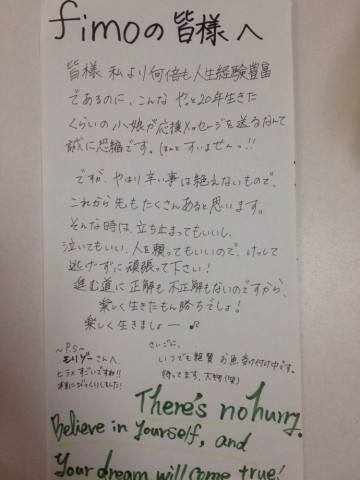 fimoの皆様へ
皆様 私より何倍も人生経験豊富
であるのに、こんな やっと20年生きた
くらいの小娘が応援メッセージを送るなんて
誠に恐縮です。(ほんと すいません。!!
ですが、やはり辛い事は絶えないもので、
これから先もたくさんあると思います。
そんな時は、立ち止まってもいいし、
泣いてもいい、人を頼ってもいいので、けっして
逃げずに頑張って下さい!
進む道に正解も不正解もないのですから、
楽しく生きたもん勝ちでしょ!
楽しく生きましょー♪
~P.S~
モリゾーさんへ、
ヒラメ すごいですね!!
本当にびっくりしました!
さいごに、
いつでも絶賛 お魚受け付け中です。
待ってます、大物(笑)
There's no hurry.
Believe in Yourself, and
Your dream will come true!